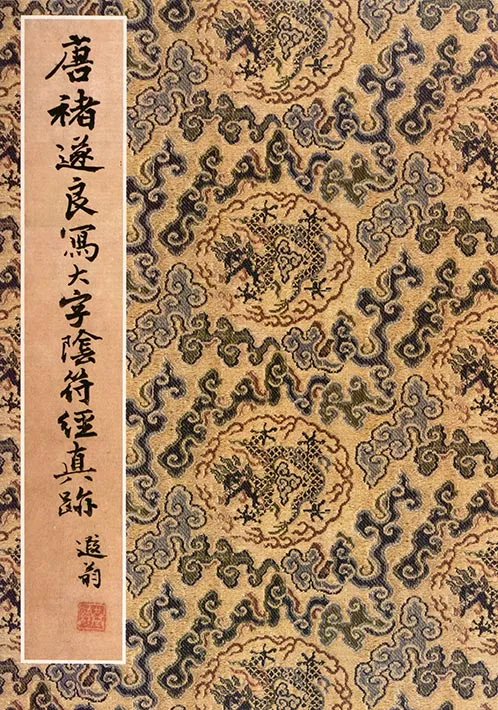 唐褚遂良寫大字陰符經真跡
遐翁